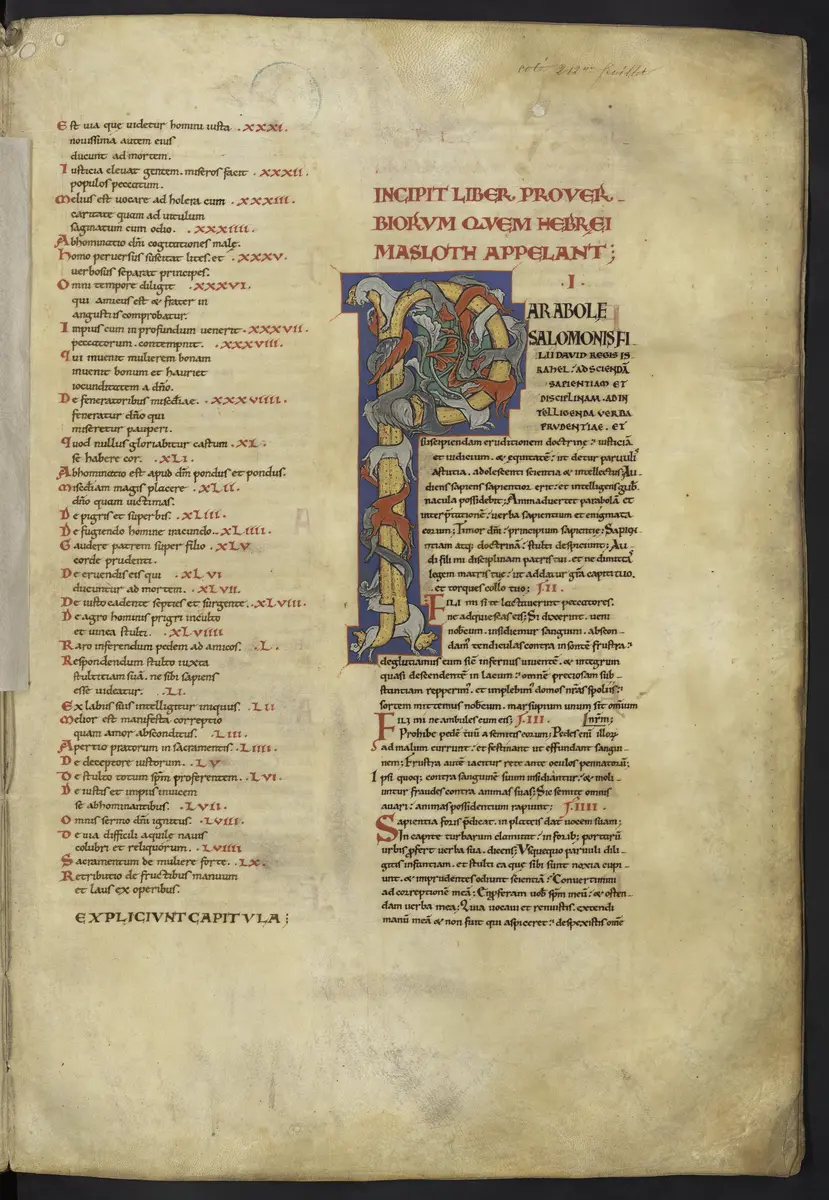 Est uia que uidetur homini iusta .XXXI.
nouissima autem eius
ducunt ad mortem.
Iusticia eleuat gentem. miseros facit .XXXII.
populos peccatum.
Melius est uocare ad holera cum .XXXIII.
caritate quam ad uitulum
saginatum cum odio. .XXXIIII.
Abhominatio dñi cogitationes male.
Homo peruersus suscitat lites. et .XXXV.
uerbosus separat principes.
Omni tempore diligit .XXXVI.
qui amicus est & frater in
angustiis comprobatur.
Impius cum in profundum uenerit .XXXVII.
peccatorum. contempnit. .XXXVIII.
Qui inuenit mulierem bonam
inuenit bonum et hauriet
iocunditatem a dño.
De feneratoribus misediae. .XXXVIIII.
feneratur dño qui
miseretur pauperi.
Quod nullus gloriabitur castum .XL.
se habere cor. .XLI.
Abhominatio est apud dñm pondus et pondus.
Misediam magis placere .XLII.
dño quam uictimas.
De pigris et superbis. .XLIII.
De fugiendo homine iracundo. .XLIIII.
Gaudere patrem super filio .XLV
corde prudenti.
De eruendis eis qui .XLVI
ducuntur ad mortem. .XLVII.
De iusto cadente septies et surgente. .XLVIII.
De agro hominis pigri inculto
et uinea stulti. .XLVIIII
Raro inferendum pedem ad amicos. .L.
Respondendum stulto iuxta
stultitiam suã. ne sibi sapiens
esse uideatur. .LI.
Ex labiis suis intelligitur iniquus. LII
Melior est manifesta correptio
quam amor absconditus. LIII.
Apertio pratorum in sacramentis. .LIIII.
De deceptore iustorum. .LV
De stulto totum spm proferentem. .LVI.
De iustis et impiis inuicem
se abhominantibus. .LVII.
Omnis sermo dñi ignitus. .LVIII.
De uia difficili aquile nauis
colubri et reliquorum. .LVIIII
Sacramentum de muliere forte. .LX.
Retributio de fructibus manuum
et laus ex operibus.
EXPLICIVNT CAPITVLA;
INCIPIT LIBER PROVER
BIORVM QVEM HEBREI
MASLOTH APPELANT;
.I.
PARABOLE
SALOMONIS FI
LII DAVID REGIS IS
RAHEL. AD SCIENDÃ
SAPIENTIAM ET
DISCIPLINAM. AD IN
TELLIGENDA VERBA
PRVDENTIAE. ET
suscipiendam eruditionem doctrine. iusticiã
et iudicium. & equitatẽ. ut detur paruulis
astutia. adolescenti scientia & intellectus; Au
diens sapiens sapientior erit. et intelligens gub
nacula possidebit; Animaduertet parabolã et
interptationẽ. uerba sapientium et enigmata
eorum; Timor dñi. principium sapientie; Sapien
tiam atq; doctrinã. stulti despiciunt; Au
di fili mi disciplinam patris tui. et ne dimittas
legem matris tue. ut addatur gratia capiti tuo.
et torques collo tuo; .II.
Fili mi si te lactauerint peccatores.
ne adquiescas eis; Si dixerint. ueni
nobcum. insidiemur sanguini. abscon
dam tendiculas contra insontẽ frustra.
deglutiamus eum sic infernus uiuentẽ. & integrum
quasi descendentẽ in lacum. omnẽ preciosam sub
stantiam repperim. et implebim domos nras spoliis.
sortem mitte nobcum. marsupium unum sit omnium
Fili mi ne ambules cum eis; .III. nrm;
Prohibe pedẽ tuũ a semitis eorum; Pedes enĩ illorum
ad malum currunt. et festinant ut effundant sangui
nem; Frustra autẽ iacitur rete ante oculos pennatorũ;
Ipsi quoq; contra sanguinẽ suum insidiantur. & moli
untur fraudes contra animas suas; Sic semite omnis
auari. animas possidentium rapiunt; .IIII.
Sapientia foris predicat. in plateis dat uocem suam;
In capite turbarum clamitat. in forib; portarũ
urbis pfert uerba sua. dicens; Vsquequo paruuli dili
gitis infantiam. et stulti ea que sibi sunt noxia cupi
unt. & imprudentes odiunt scientiã; Conuertimini
ad correptionẽ meã; En pferam uob spm meũ. & osten
dam uerba mea; Quia uocaui et renuistis. extendi
manũ meã & non fuit qui aspiceret. despexistis omẽ